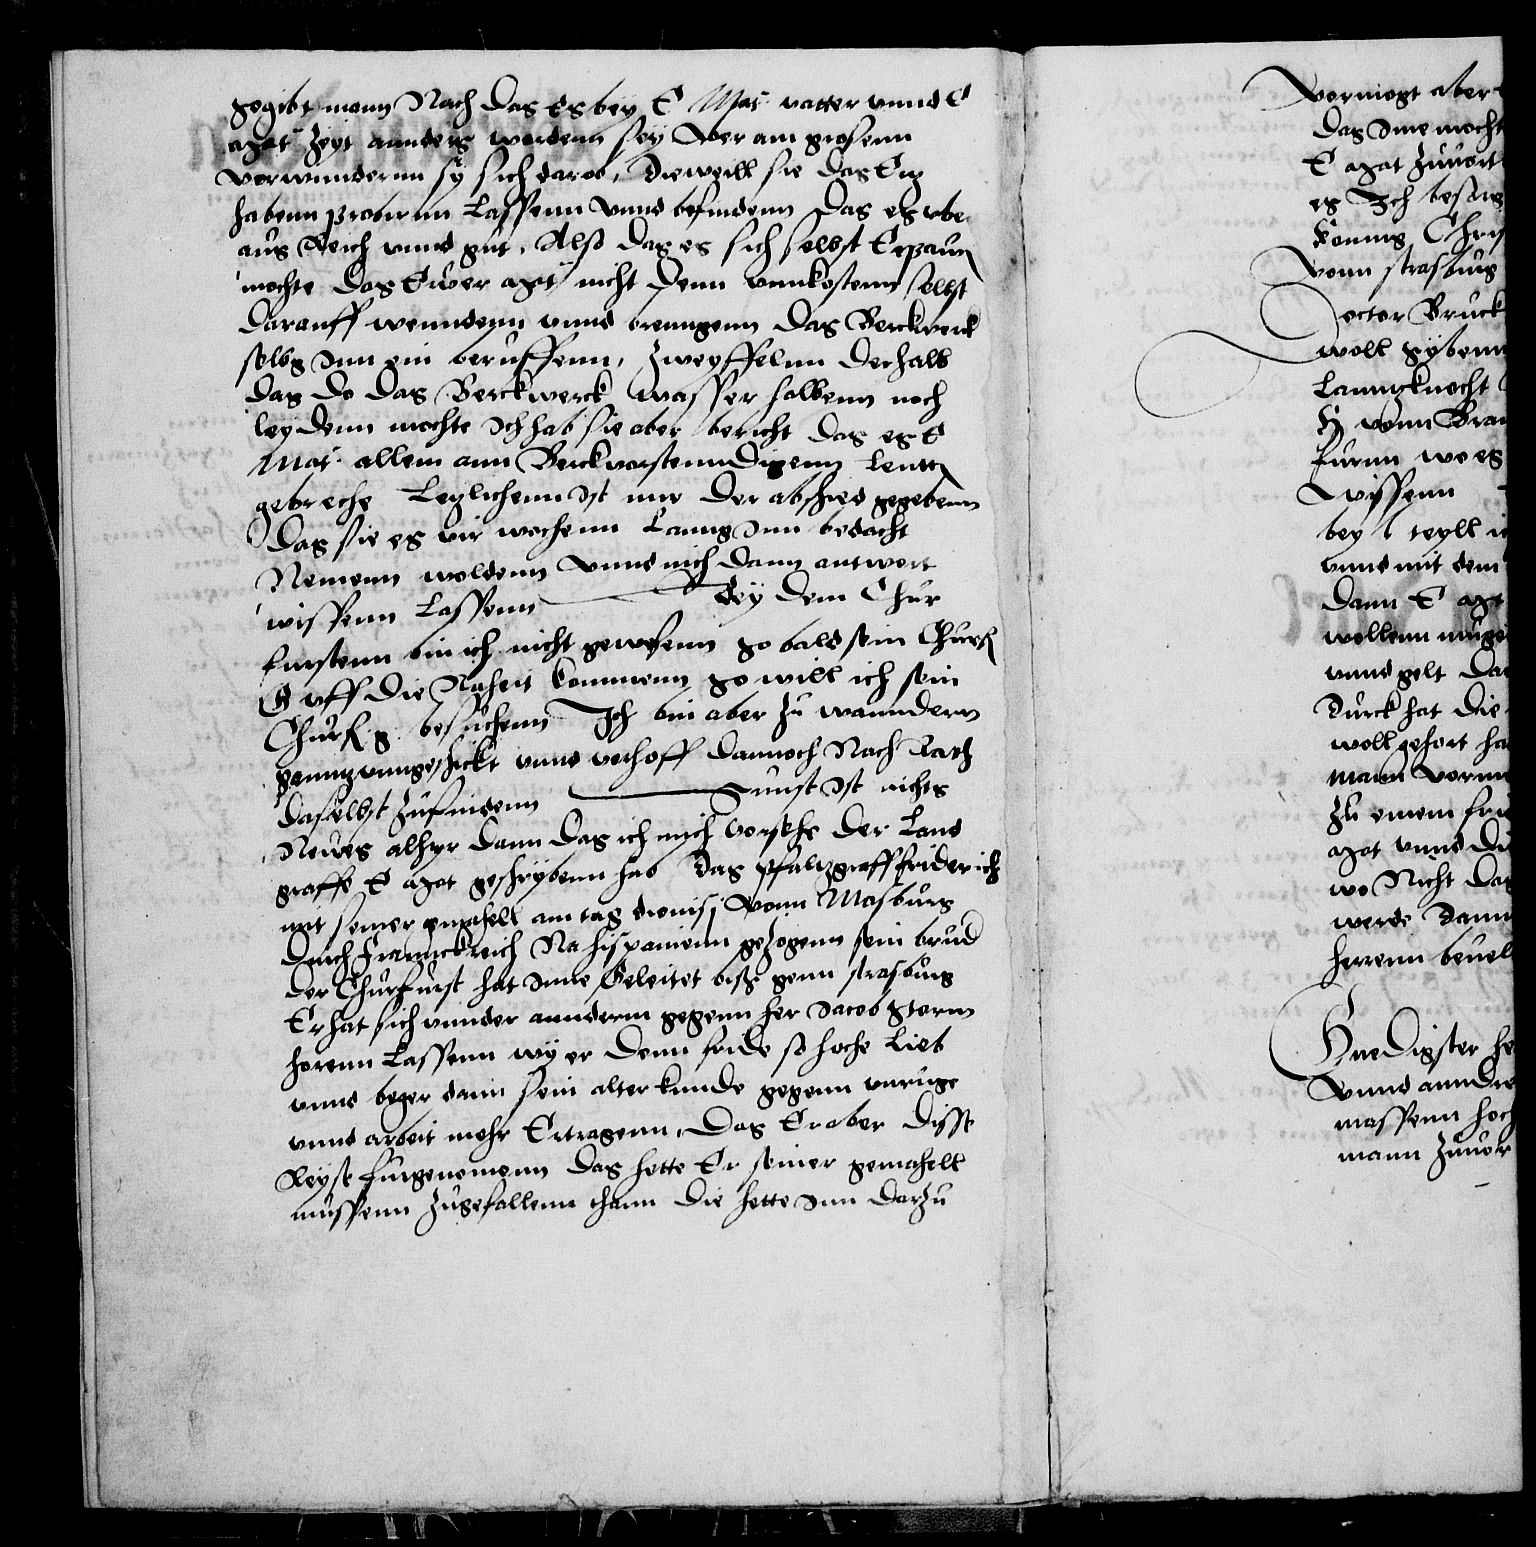 gegibt mann Nach das es bey E Mat. vatter unnd E
Mat. Zeyt annders wordenn sey Aber am grosenn
verwundernn sy sich darob, Dieweill sie das Ertz
habenn probirnn Lassenn Unnd befindenn das es uber
aus Reich unnd gut, Also das es sich selbst
mochte das Ewer Mat. nicht denn unnkostenn selbst
darauff wenndenn unnd brenngenn das Berckwerck
selbs Inn ein beruffenn, Zweyffelnn derhalb
das do das Berckwerck wasser halbenn noch
leydenn mochte Ich hab sie aber bericht das es E
Mat. allein ann Berckvorstenndigenn leuttenn
gebreche Letzlichenn Ist mir der abschied gegebenn
Das sie es vir wochenn Lanng Inn bedacht
Nemenn woldenn Unnd mich dann antwort
wissenn Lassenn Bey dem Chur
furstenn bin ich nicht gewesenn so bald sein Churf
G uff die Naheit kommenn so will ich sein
Churf. g. besuchenn Ich bin aber zu wanndern
gannz unngeschickt unnd verhoff dannoch Nach Rath
daselbst zufindenn Sunst Ist nichts
Neues alhyr dann das ich mich vorsehe der Land
graffe E Mat geschrybenn hab das pfaltzgraff friderich
mit seiner gemahell am tag dionisj Vonn Masburg
durch Franckreich Na hispanienn gezogenn sein brud
der Churfurst hat Inne Geleitet bisz genn strasburg
Er hat sich unnder annderm gegenn her Jacob Storm
horenn Lassenn wy er denn fride so hoche Liebt
unnd beger dann sein alter kunde gegenn unruge
unnd arbeit mehr Ertragenn, Das Er aber disse
Reyse furgenomenn das hette Er seiner gemahell
mussenn Zugefallenn thann die hette Inn darzu
vormogt aber
das Inne mocht
E Mat zuvort
es Ich besorg
Konnig Chris
Vonn strasburg
Doctor Bruck
woll gybenn
Lanntzknecht
H vonn Bran
furnn wo es
Wyssenn
bey teyll
unnd mit dem
dann E Mat
wollenn muge
unnd gelt das
Turck hat die
woll gehort ha
mann vorm
Zu einem frid
Mat unnd du
wo Nicht das
werde dann
herrenn beuel
Gnedigster he
Unnd anndre
massenn hoch
mann Zuvor